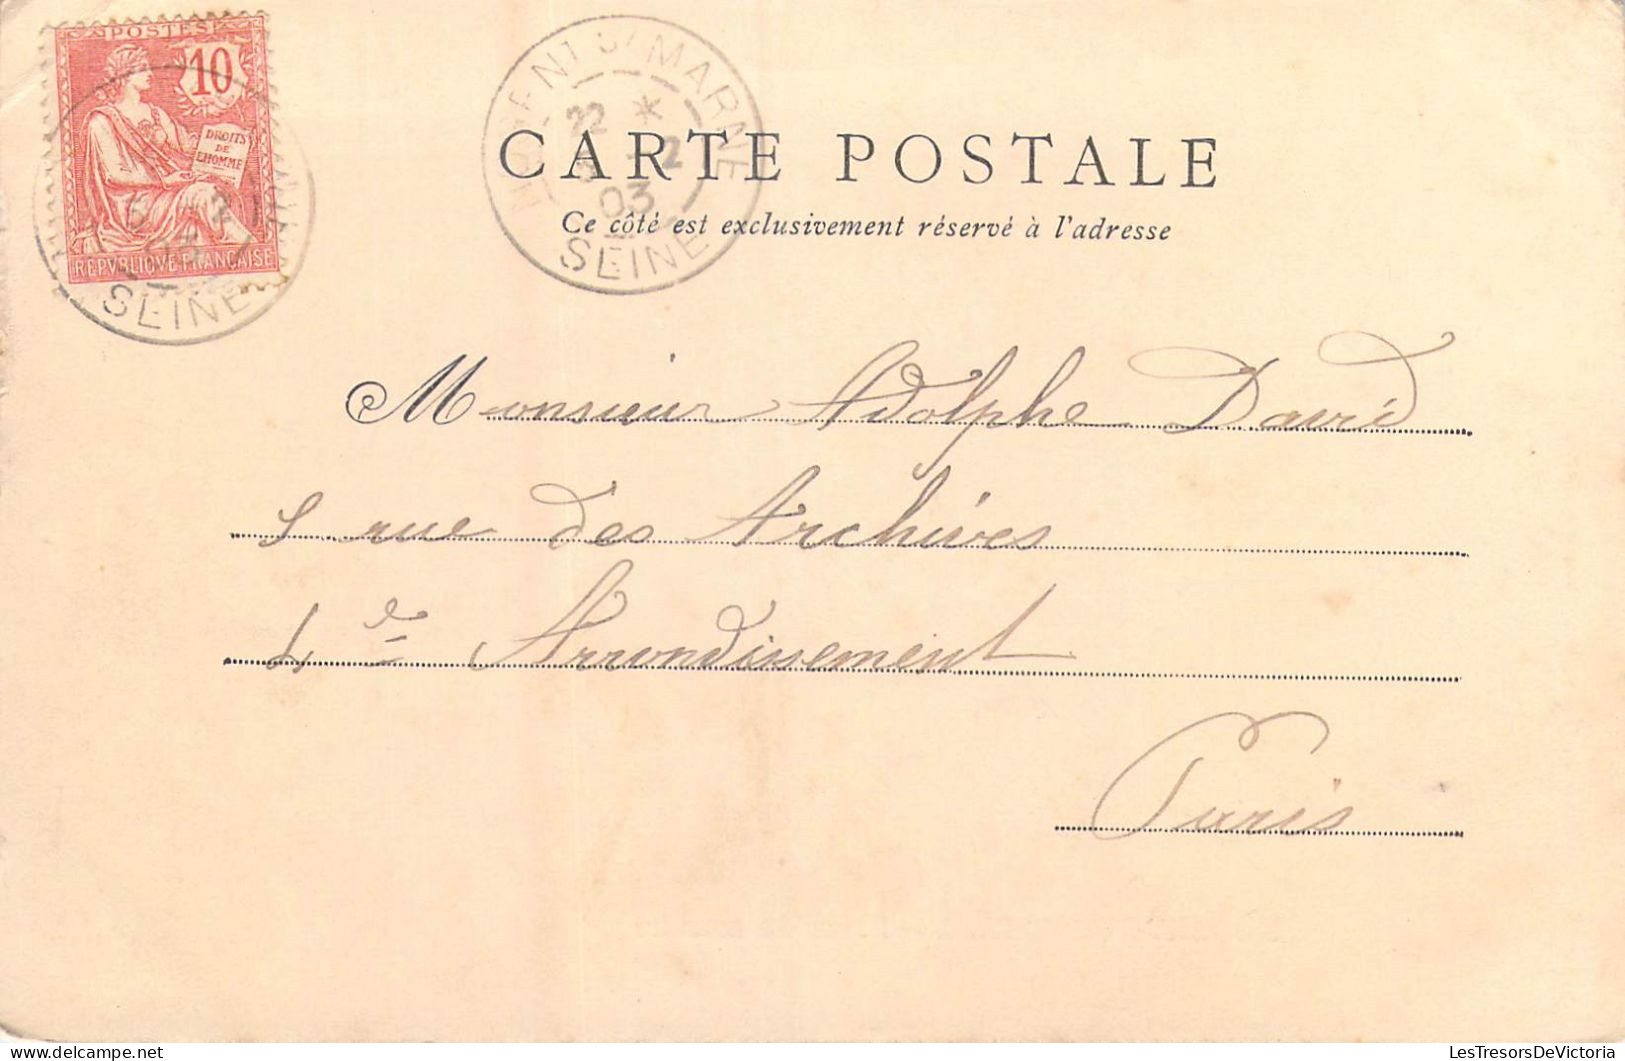 POSTES
10
DROITS
DE
L'HOMME
REPVBLIQUE FRANÇAISE
SEINE
NOGENT S/ MARNE
22 *
-2
03
SEINE
CARTE POSTALE
Ce côté est exclusivement réservé à l'adresse
Monsieur Adolphe David
rue des Archives
4e Arrondissement
Paris
LesTresorsDeVictoria